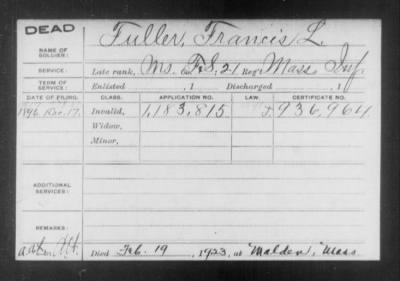 DEAD
NAME OF SOLDIER: Fuller, Francis L.
SERVICE: Late rank, Ms. Co. F.S, 21 Reg't Mass. Inf.
TERM OF SERVICE: Enlisted , 1 Discharged , 1
DATE OF FILING. CLASS. APPLICATION NO. LAW. CERTIFICATE NO.
1896 Dec. 17. Invalid, 1,183,815 936,964
Widow,
Minor,
ADDITIONAL SERVICES:
REMARKS:
Died Feb. 19, 1923, at "Malden," Mass